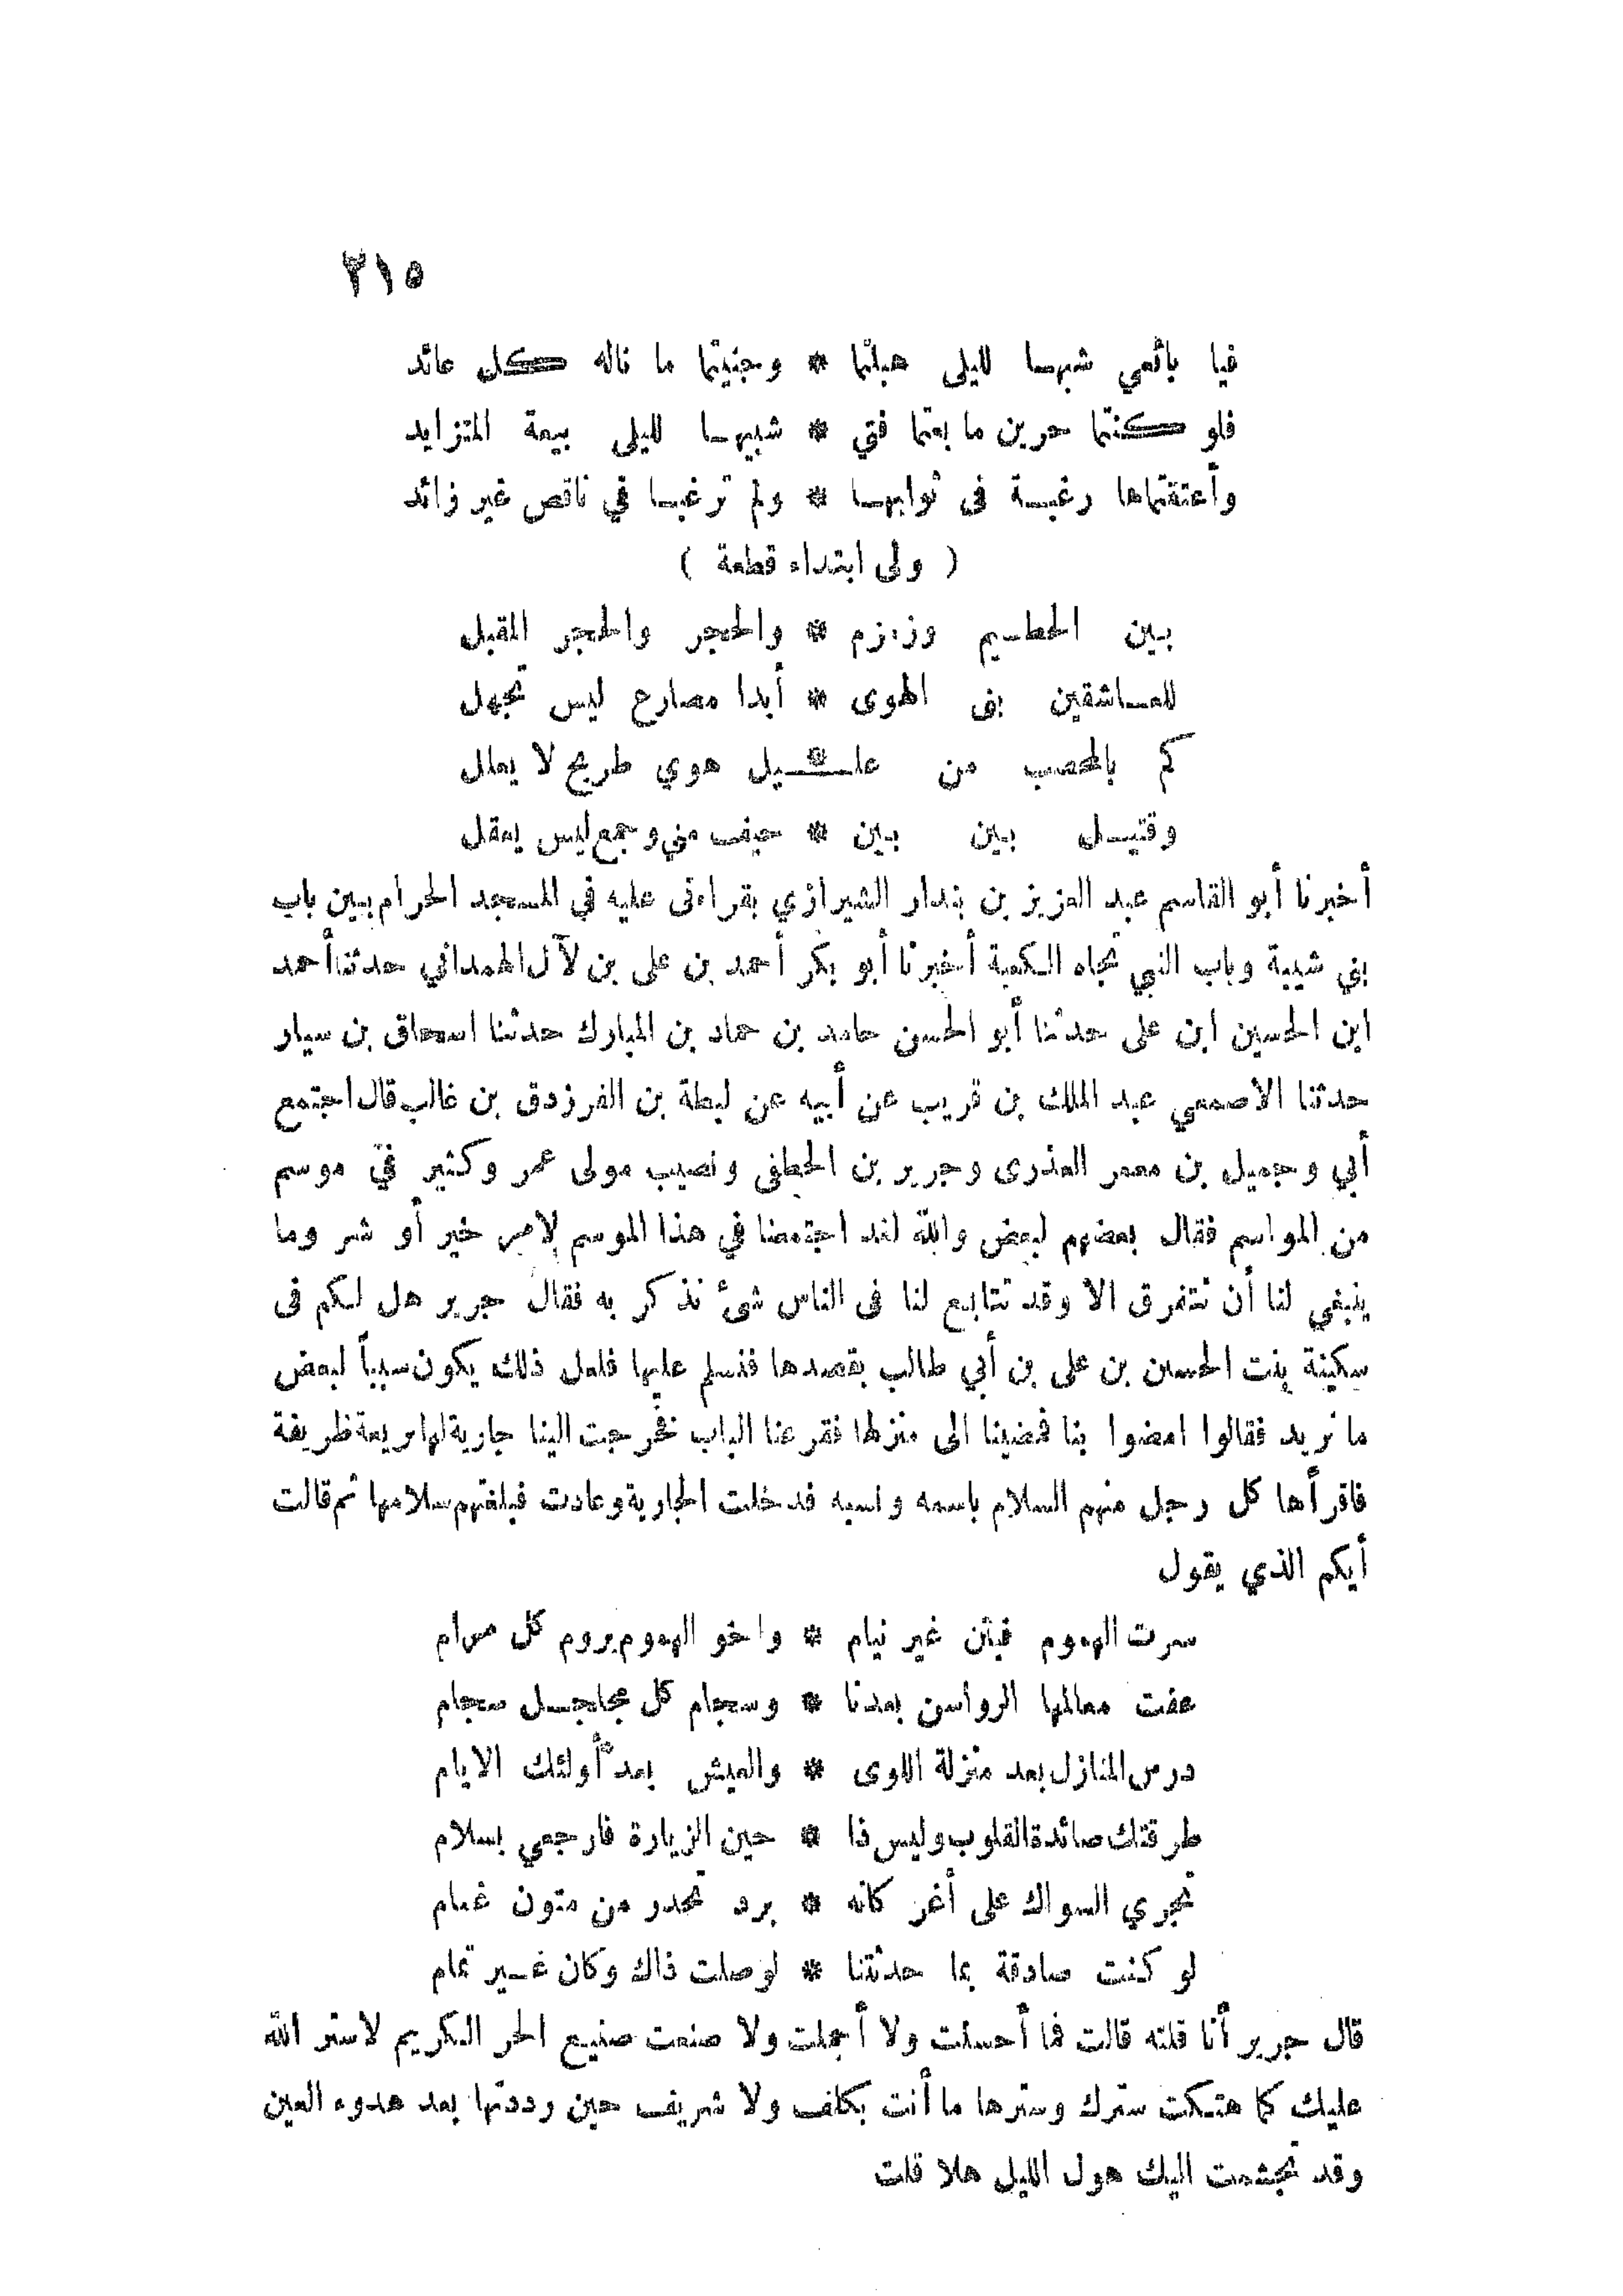 ٢١٥
فيا بائعي شبهـا لليلى هبلتما * وجنبتما ما ناله كـكل عائد
فلو كـنتما حرين ما بعتما فتي * شبيهـا لليلى بيعة المتزايد
وأعتقتماها رغبـة فى ثوابهـا * ولم ترغبـا في ناقص غير زائد
( ولى ابتداء قطعة )
بـين الحطـيم وزمزم * والحجر والحجر المقبل
للعـاشقين بنى الهوى * أبدا مصارع ليس تجهل
كم بالمحصب من علـ * ـيل هوي طريح لا يعلل
وقتيـل بـين بـين * خيف مني وجمع ليس يعقل
أخبرنا أبو القاسم عبد العزيز بن بندار الشيرازي بقراءتى عليه في المسجد الحرام بـين باب
بني شيبة وباب النبي تجاه الكعبة أخبرنا أبو بكر أحمد بن على بن لآل الهمداني حدثنا أحمد
ابن الحسين ابن على حدثنا أبو الحسن حامد بن حماد بن المبارك حدثنا اسحاق بن سيار
حدثنا الاصمعي عبد الملك بن قريب عن أبيه عن لبطة بن الفرزدق بن غالب قال اجتمع
أبي وجميل بن معمر العذرى وجرير بن الخطفى ونصيب مولى عمر وكثير في موسم
من المواسم فقال بعضهم لبعض والله لقد اجتمعنا في هذا الموسم لامر خير أو شر وما
ينبغي لنا أن نتفرق الا وقد تتابع لنا فى الناس شئ نذكر به فقال جرير هل لكم فى
سكينة بنت الحسين بن على بن أبي طالب بقصدها فنسلم عليها فلعل ذلك يكون سبباً لبعض
ما نريد فقالوا امضوا بنا فمضينا الى منزلها فقرعنا الباب فخرجت الينا جارية لها بريعة ظريفة
فاقرأها كل رجل منهم السلام باسمه ونسبه فدخلت الجارية وعادت فبلغتهم سلامها ثم قالت
أيكم الذي يقول
سرت الهموم فبتن غير نيام * واخو الهموم يروم كل مرام
عفت معالمها الرواسن بعدنا * وسجام كل مجلجـل سجام
درس المنازل بعد منزلة اللوى * والعيش بعد أولئك الايام
طرقتك صائدة القلوب وليس ذا * حين الزيارة فارجعي بسلام
تجري السواك على أغر كانه * برد تحدر من متون غمام
لو كنت صادقة بما حدثتنا * لوصلت ذاك وكان غـير تمام
قال جرير أنا قلته قالت فما أحسنت ولا أجملت ولا صنعت صنيع الحر الكريم لاستر الله
عليك كما هتكت سترك وسترها ما أنت بكلف ولا شريف حين رددتها بعد هدوء العين
وقد تجشمت اليك هول الليل هلا قلت